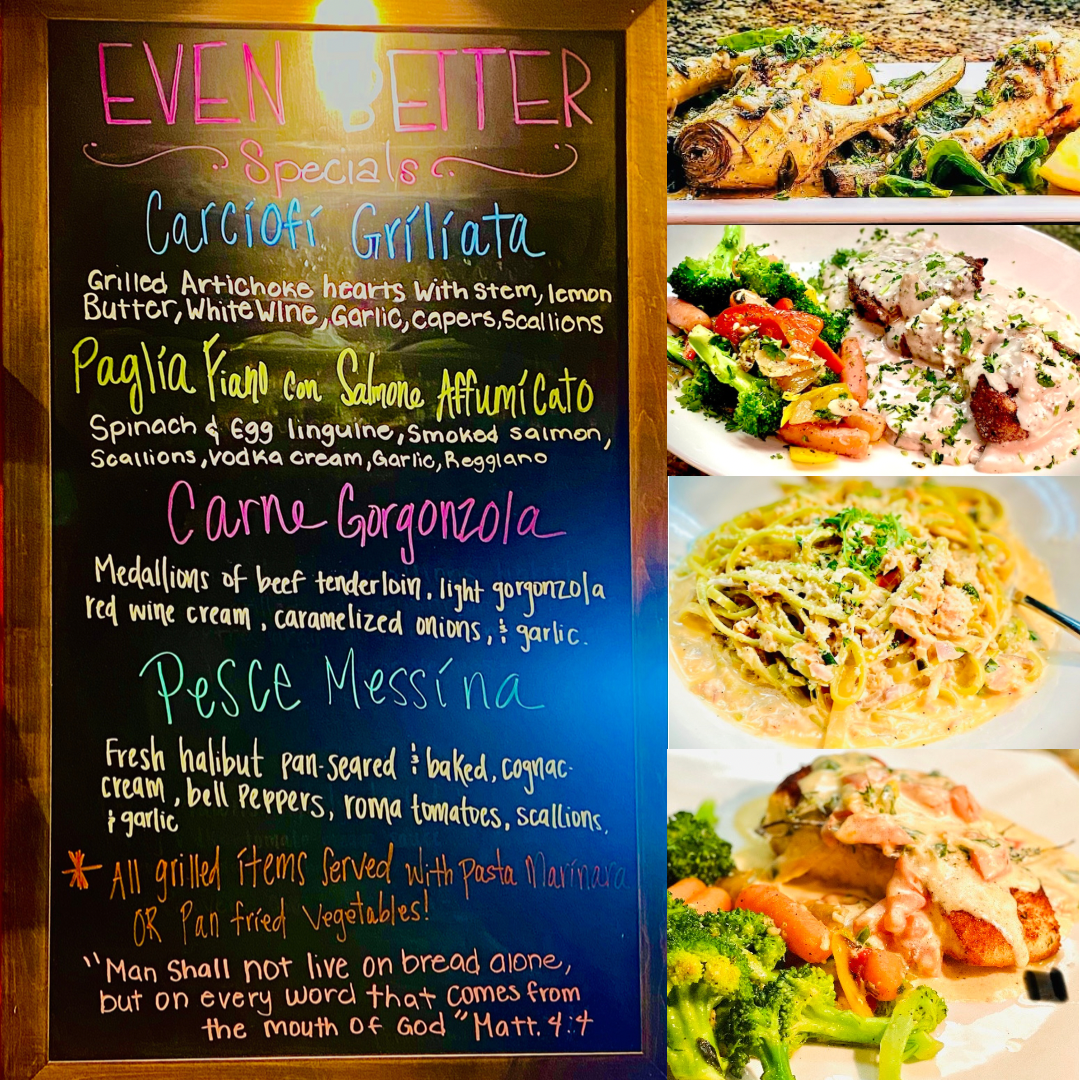 EVEN BETTER
Specials
Carciofi Griliata
Grilled Artichoke hearts with stem, lemon
Butter, White Wine, Garlic, capers, Scallions
Paglia Fiano con Salmone Affumicato
Spinach & Egg linguine, Smoked salmon,
Scallions, vodka cream, Garlic, Reggiano
Carne Gorgonzola
Medallions of beef tenderloin, light gorgonzola
red wine cream, caramelized onions, & garlic.
Pesce Messina
Fresh halibut pan-seared & baked, cognac-
cream, bell peppers, roma tomatoes, scallions,
& garlic
* All grilled items served with pasta Marinara
OR Pan fried Vegetables!
"Man shall not live on bread alone,
but on every word that comes from
the mouth of God" Matt. 4:4